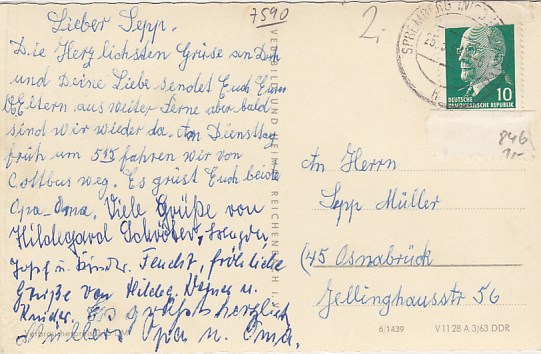 7590
2.
Lieber Sepp.
Die Herzlichsten Grüse an Dich
und Deine Liebe sendet Euch Eure
Eltern aus weiter Ferne aber bald
sind wir wieder da. Am Dienstag
früh um 5 15 fahren wir von
Cottbus weg. Es grüst Euch beide
Opa - Oma. Viele Grüße von
Hildegard
Kinder. Feucht, fröhliche
Grüße von Hilde, u.
Kinder. Es grüßt herzlich
Opa u. Oma.
VERB BILD UND HEIMAT REICHENBACH I. V.
SPREMBERG
10
DEUTSCHE
DEMOKRATISCHE REPUBLIK
846
1,-
An Herrn
Sepp Müller
(45 Osnabrück
Jellinghausstr 56
6/1439
V 11 28 A 3/63 DDR